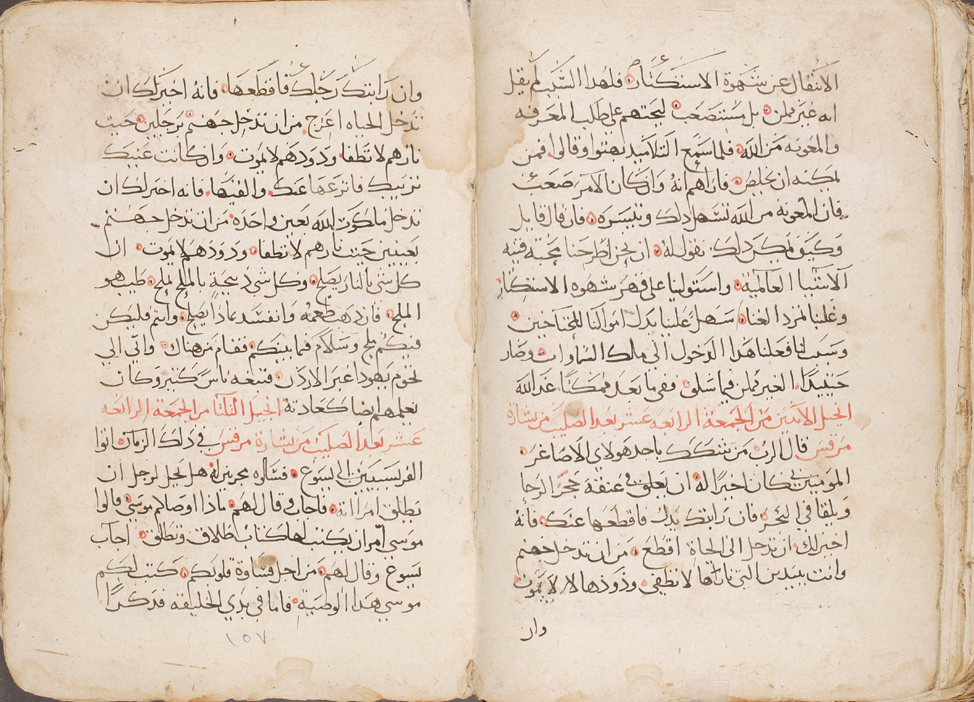 الانتقال عن شهوة الاستكثار فلهذا السبب لم يقل
انه غير ممكن بل مستصعب ليحثهم على طلب المعرفه
والمعونه من الله فلما سمع التلاميذ بهتوا وقالوا فمن
يمكنه ان يخلص فاراهم انه وان كان الامر صعب
فان المعونه من الله تسهل ذلك وتيسره فان قال قايل
وكيف يمكن ذلك نقول له ان نحن اطرحنا محبة قنيه
الاشيا العالميه واستولينا على قهر شهوه الاستكثار
وغلبنا لمرد الغناه سهل علينا بذل اموالنا للمحتاجين
وسبب لنا فعلنا هذا الدخول الى ملك السماوات وصار
حينيذ الغير ممكن فيما سلف وفيما بعد ممكنا عند الله
انجيل الاثنين من الجمعة الرابعه عشر بعد الصليب من بشارة
مرقس قال الرب من شكك باحد هولاي الاصاغر
المومنين بي كان اخير اله ان يعلق في عنقه حجر الرحا
ويلقا في البحر فان رابتك يدك فاقطعها عنك فانه
اخير لك ان تدخل الى الحياة اقطع من ان تدخل جهنم
وانت بيدين التي نارها لا تطفي ودودها لا يموت
وان
وان رابتك رجلك فاقطعها فانه اخير لك ان
تدخل الحياه اعرج من ان تدخل جهنم برجلين حيث
نارهم لا تطفا ودودهم لا يموت وان كانت عينك
تربيك فانزعها عنك والقيها فانه اخير لك ان
تدخل ملكوت الله بعين واحده من ان تدخل جهنم
بعينين حيث نارهم لا تطفا ودودهم لا يموت ان
كل شي بالنار يصلح وكل شي ذبيحة بالملح يملح طيب هو
الملح فان ذهب طعمه وانفسد بماذا يصلح وانتم فليكن
فيكم ملح وسلام فما بينكم فقام من هناك واتى الى
تخوم يهودا عبر الاردن فتبعه ناس كثير وكان
يعلمهم ايضا كعادته انجيل الثلثا من الجمعة الرابعه
عشر بعد الصليب من بشارة مرقس في ذلك الزمان اتوا
الفريسيين الى يسوع فسالوه مجربين له هل يحل لرجل ان
يطلق امراته فاجاب وقال لهم ماذا اوصاكم موسى قالوا
موسى امر ان يكتب لها كتاب طلاق وتطلق اجاب
يسوع وقال لهم من اجل قساوة قلوبكم كتب لكم
موسى هذه الوصية فاما في بدي الخليقه فذكرا
١٥٧